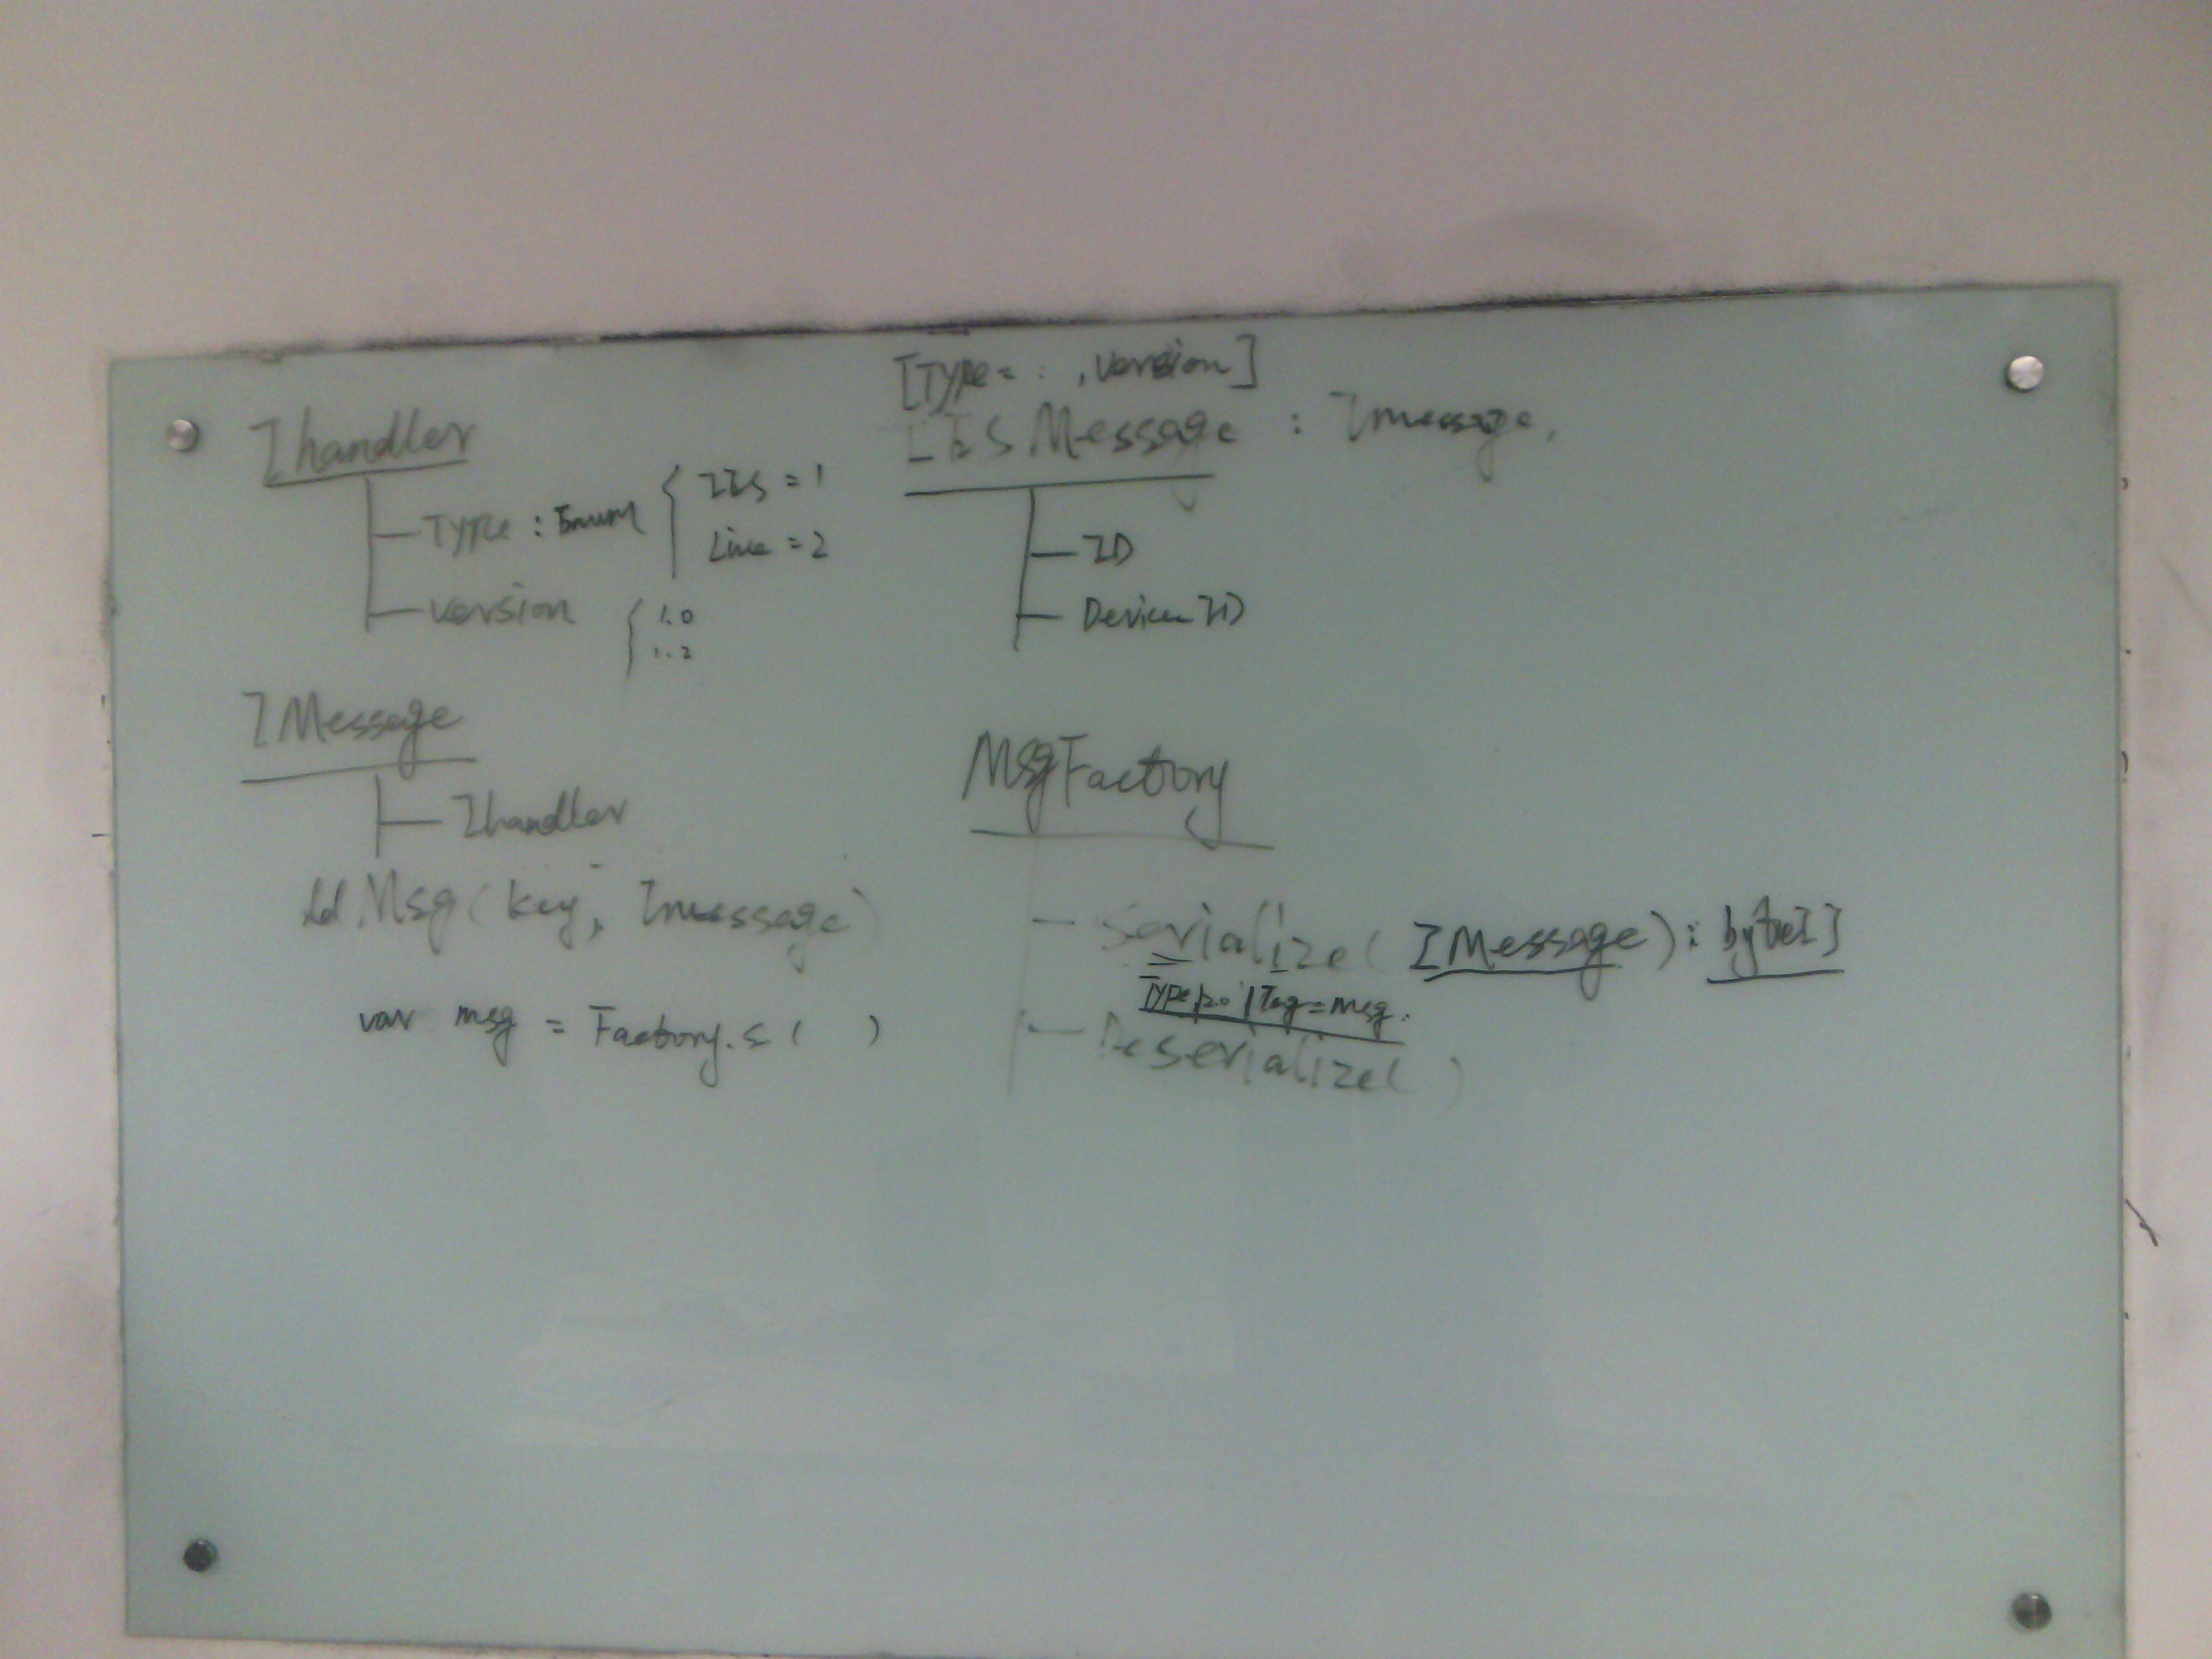 Ihandler
Type : Enum { IIS = 1
Line = 2
Version { 1.0
1.2
IMessage
Ihandler
Msg(key, Imessage)
var msg = Factory.s( )
[Type= : , Version]
IIS Message : Imessage,
ID
Device ID
MsgFactory
- Serialize( IMessage ) : byte[]
Type Tag=msg.
- Deserialize( )